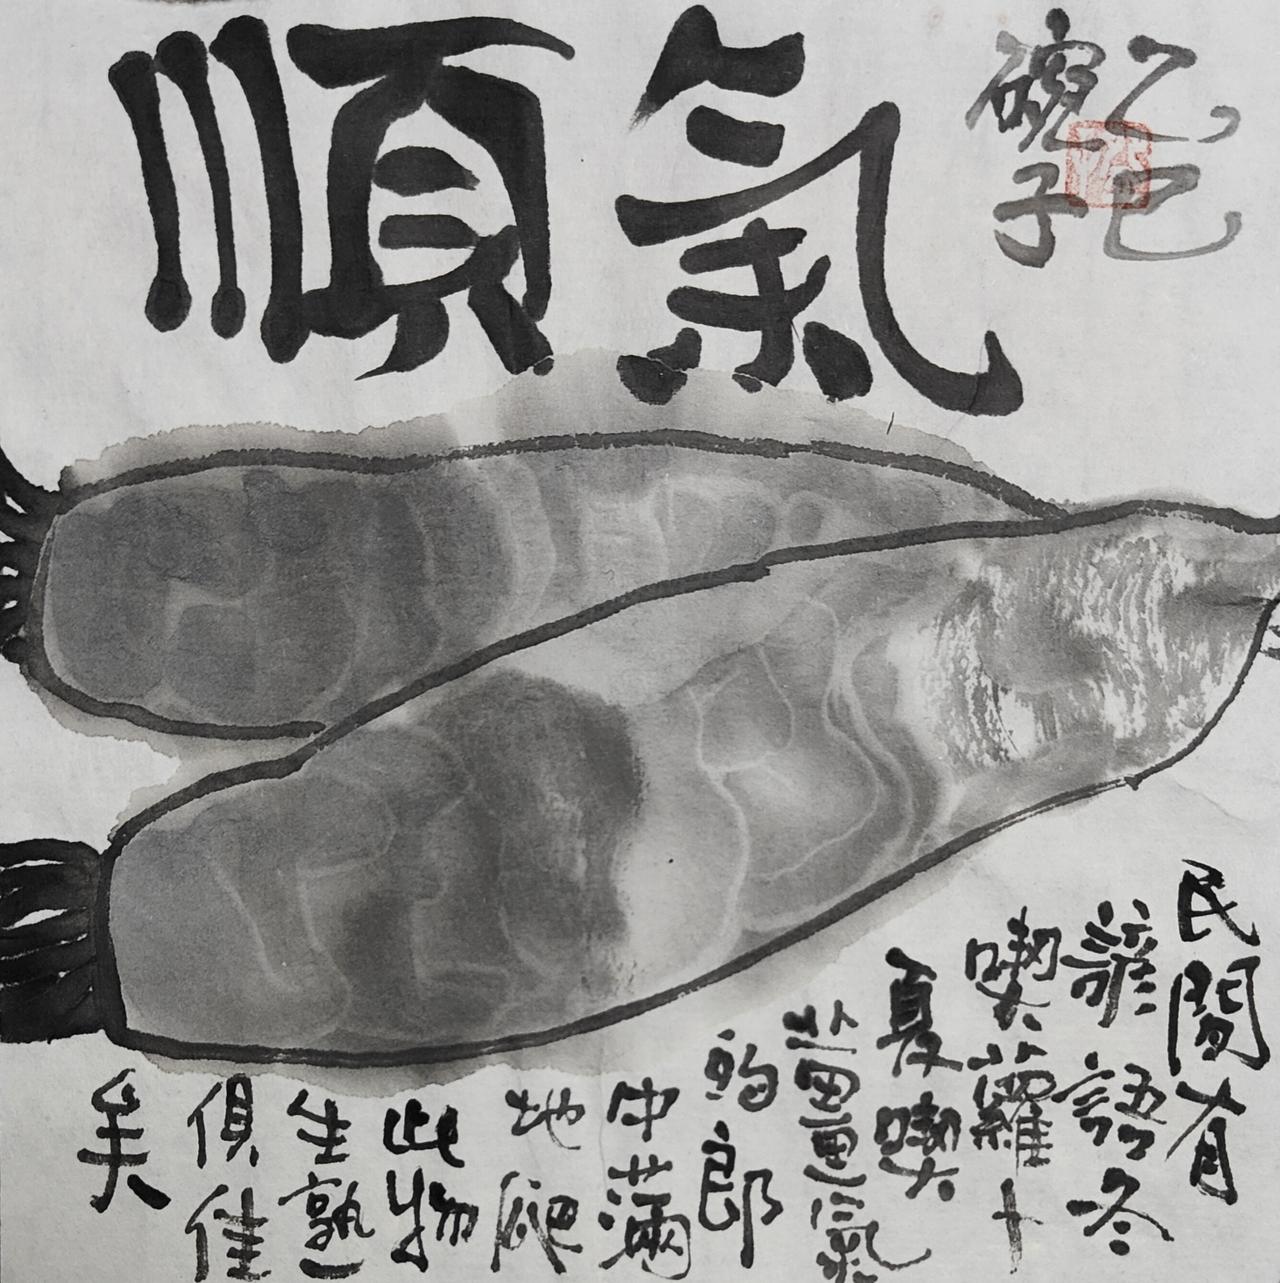 氣順
乙巳
碗子
民間有
諺語冬
喫蘿卜
夏喫
薑氣
的郎
中滿
地爬
此物
生熟
俱佳
矣